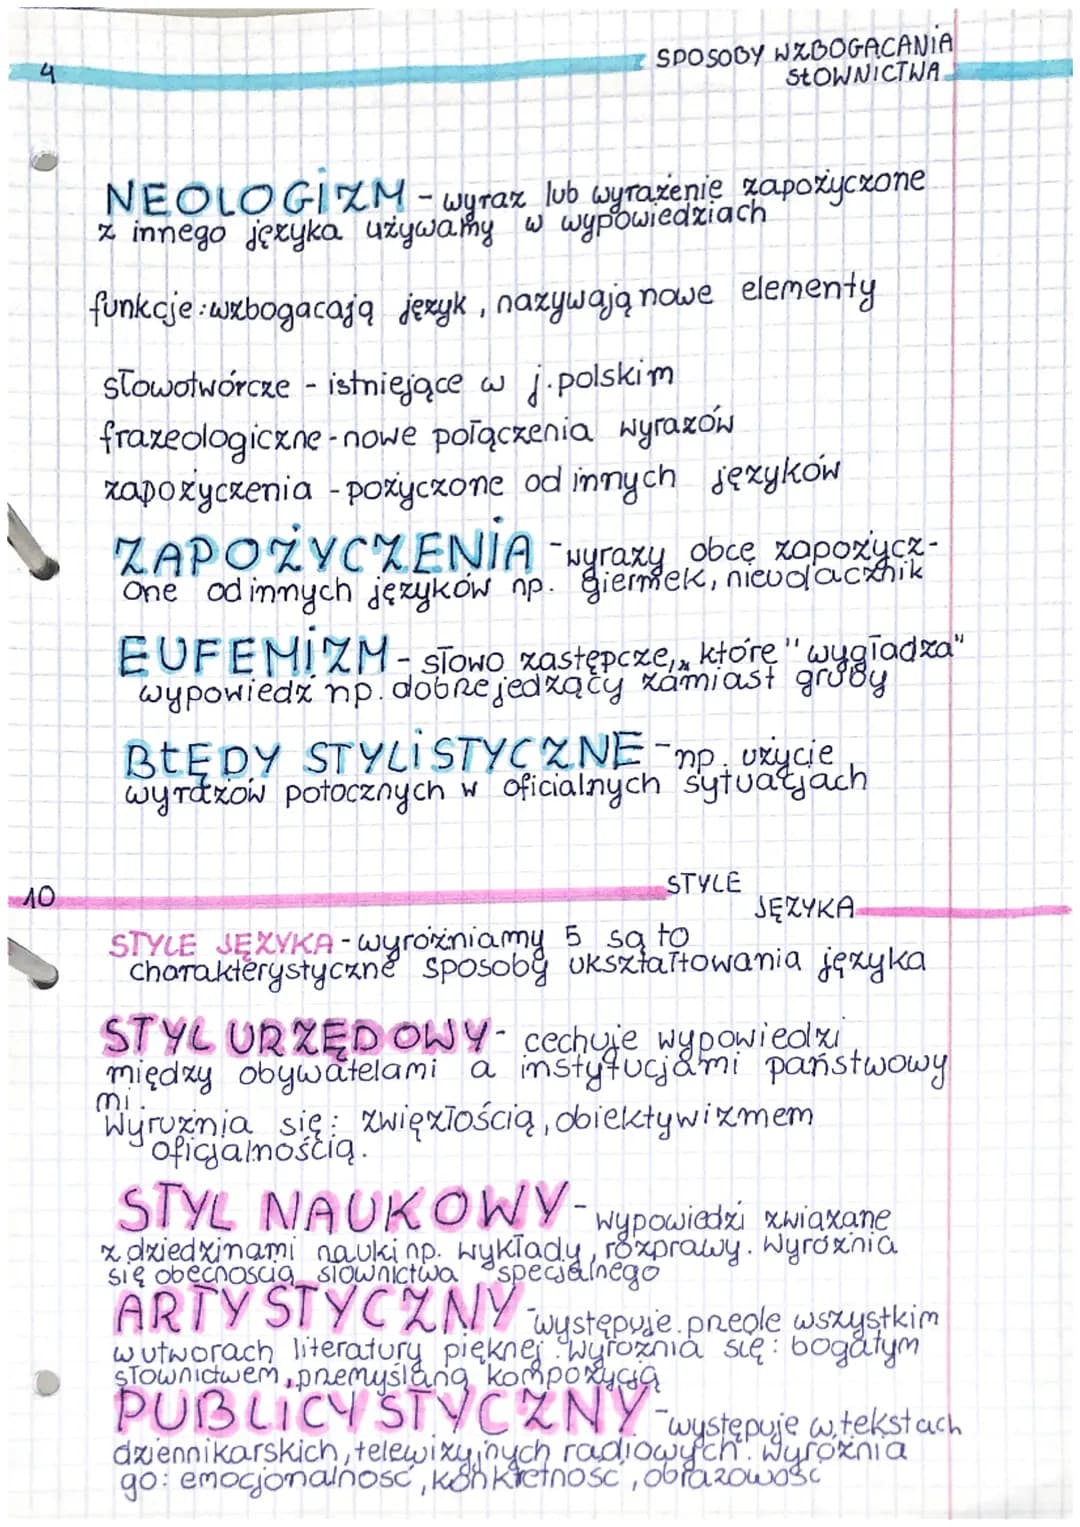 4
SPOSOBY WZBOGACANIA
SŁOWNICTWA
NEOLOGIZM - wyraz lub wyrażenie zapożyczone
z innego języka używamy w wypowiedziach
funkcje: wzbogacają język, nazywają nowe elementy
słowotwórcze - istniejące w j. polskim
frazeologiczne - nowe połączenia wyrazów
zapożyczenia - pożyczone od innych języków
ZAPOŻYCZENIA - wyrazy obce zapożycz-
one od innych języków np. giermek, nieudacznik
EUFEMIZM - słowo zastępcze, które "wygładza"
wypowiedź np. dobrze jedzący zamiast gruby
BŁĘDY STYLISTYCZNE - np. użycie
wyrazów potocznych w oficialnych sytuacjach
10
STYLE
JĘZYKA
STYLE JĘZYKA - wyróżniamy 5 są to
charakterystyczne sposoby ukształtowania języka
STYL URZĘDOWY - cechuje wypowiedzi
między obywatelami a instytucjami państwowy
mi.
Wyróżnia się: zwięzłością, obiektywizmem
oficjalnością.
STYL NAUKOWY - wypowiedzi związane
z dziedzinami nauki np. wykłady, rozprawy. Wyróżnia
się obecnością słownictwa specjalnego
ARTYSTYCZNY - występuje przede wszystkim
w utworach literatury pięknej. Wyróżnia się: bogatym
słownictwem, przemyślaną kompozycją
PUBLICYSTYCZNY - występuje w tekstach
dziennikarskich, telewizyjnych radiowych. Wyróżnia
go: emocjonalność, konkretność, obrazowość